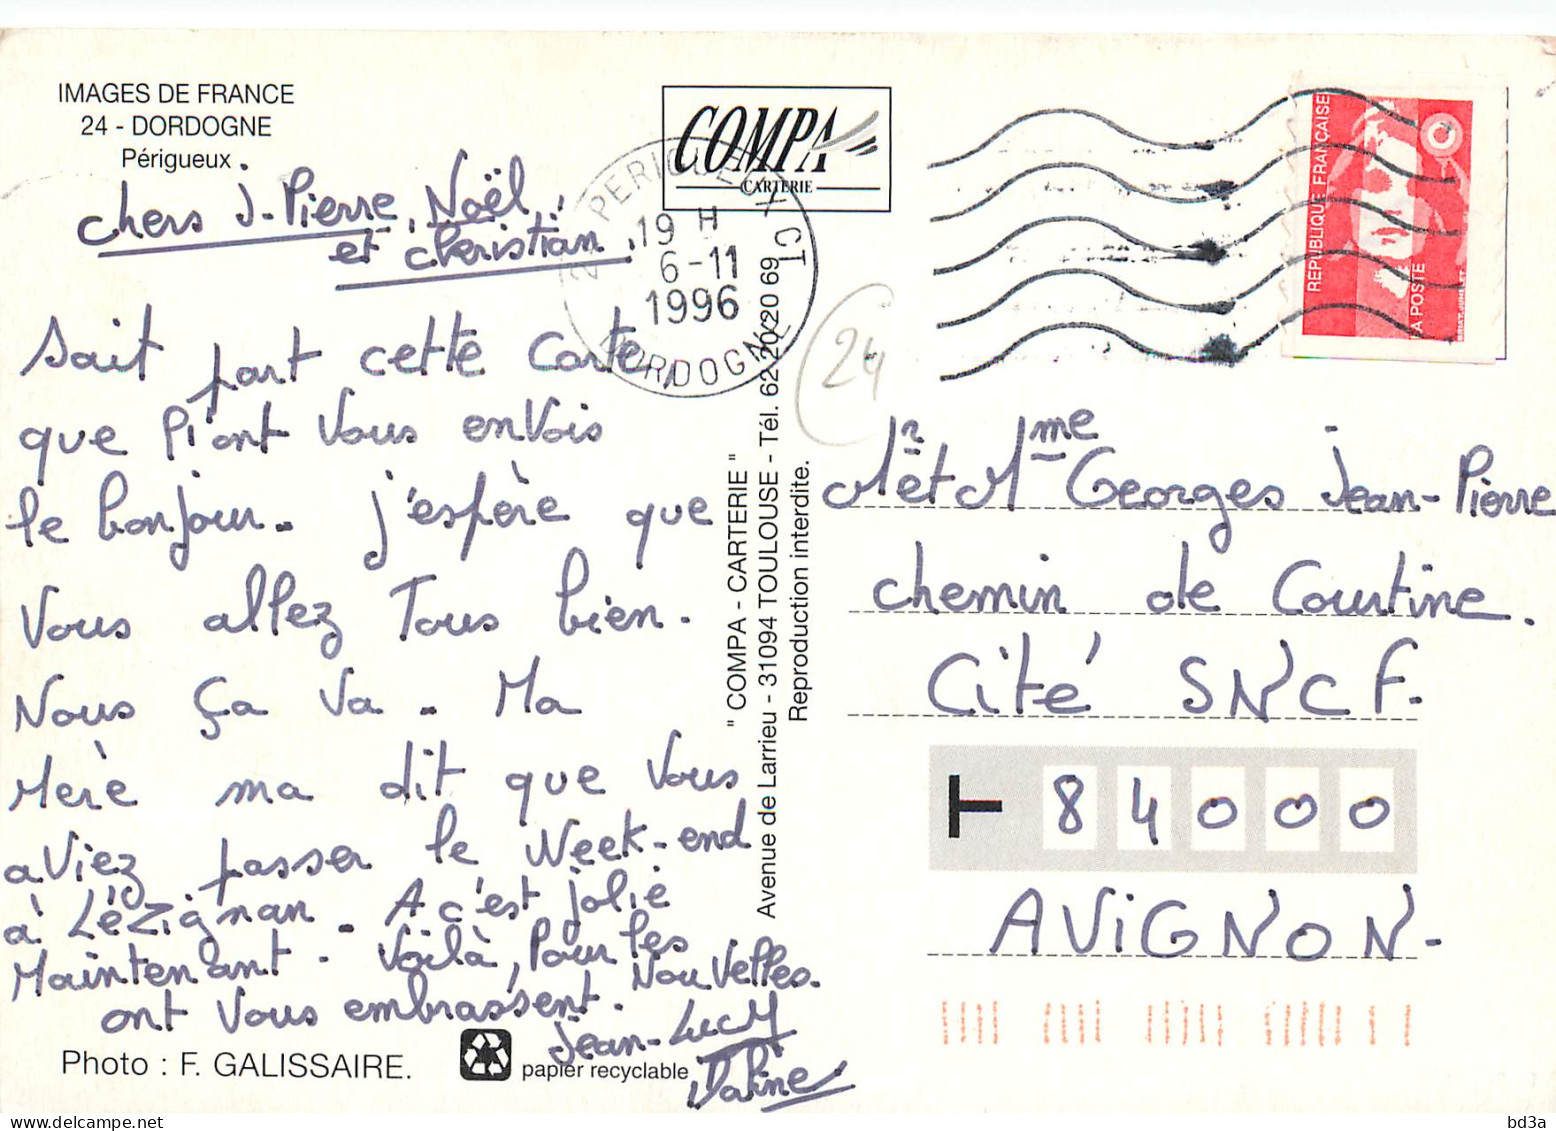 IMAGES DE FRANCE
24 - DORDOGNE
Périgueux
COMPA
CARTERIE
24 PERIGUEUX CT
19 H
6-11
1996
DORDOGNE
REPUBLIQUE FRANÇAISE
LA POSTE
24
chers J-Pierre, Noël,
et christian,
Sait part cette Carte,
que Pi ont Vous enVois
le bonjour. j'espère que
Vous allez Tous bien.
Nous ça va. Ma
Mère ma dit que Vous
aViez passer le Week-end
à Lézignan. A c'est jolie
Maintenant. Voilà, Pour les
NouVelles.
ont Vous embrassent.
Jean-Luc
" COMPA - CARTERIE "
Avenue de Larrieu - 31094 TOULOUSE - Tél. 62 20 20 69
Reproduction interdite.
Mr et Mme Georges Jean-Pierre
chemin de Courtine.
Cité SNCF.
84000
AViGNON-
Photo : F. GALISSAIRE.
papier recyclable
bd3a